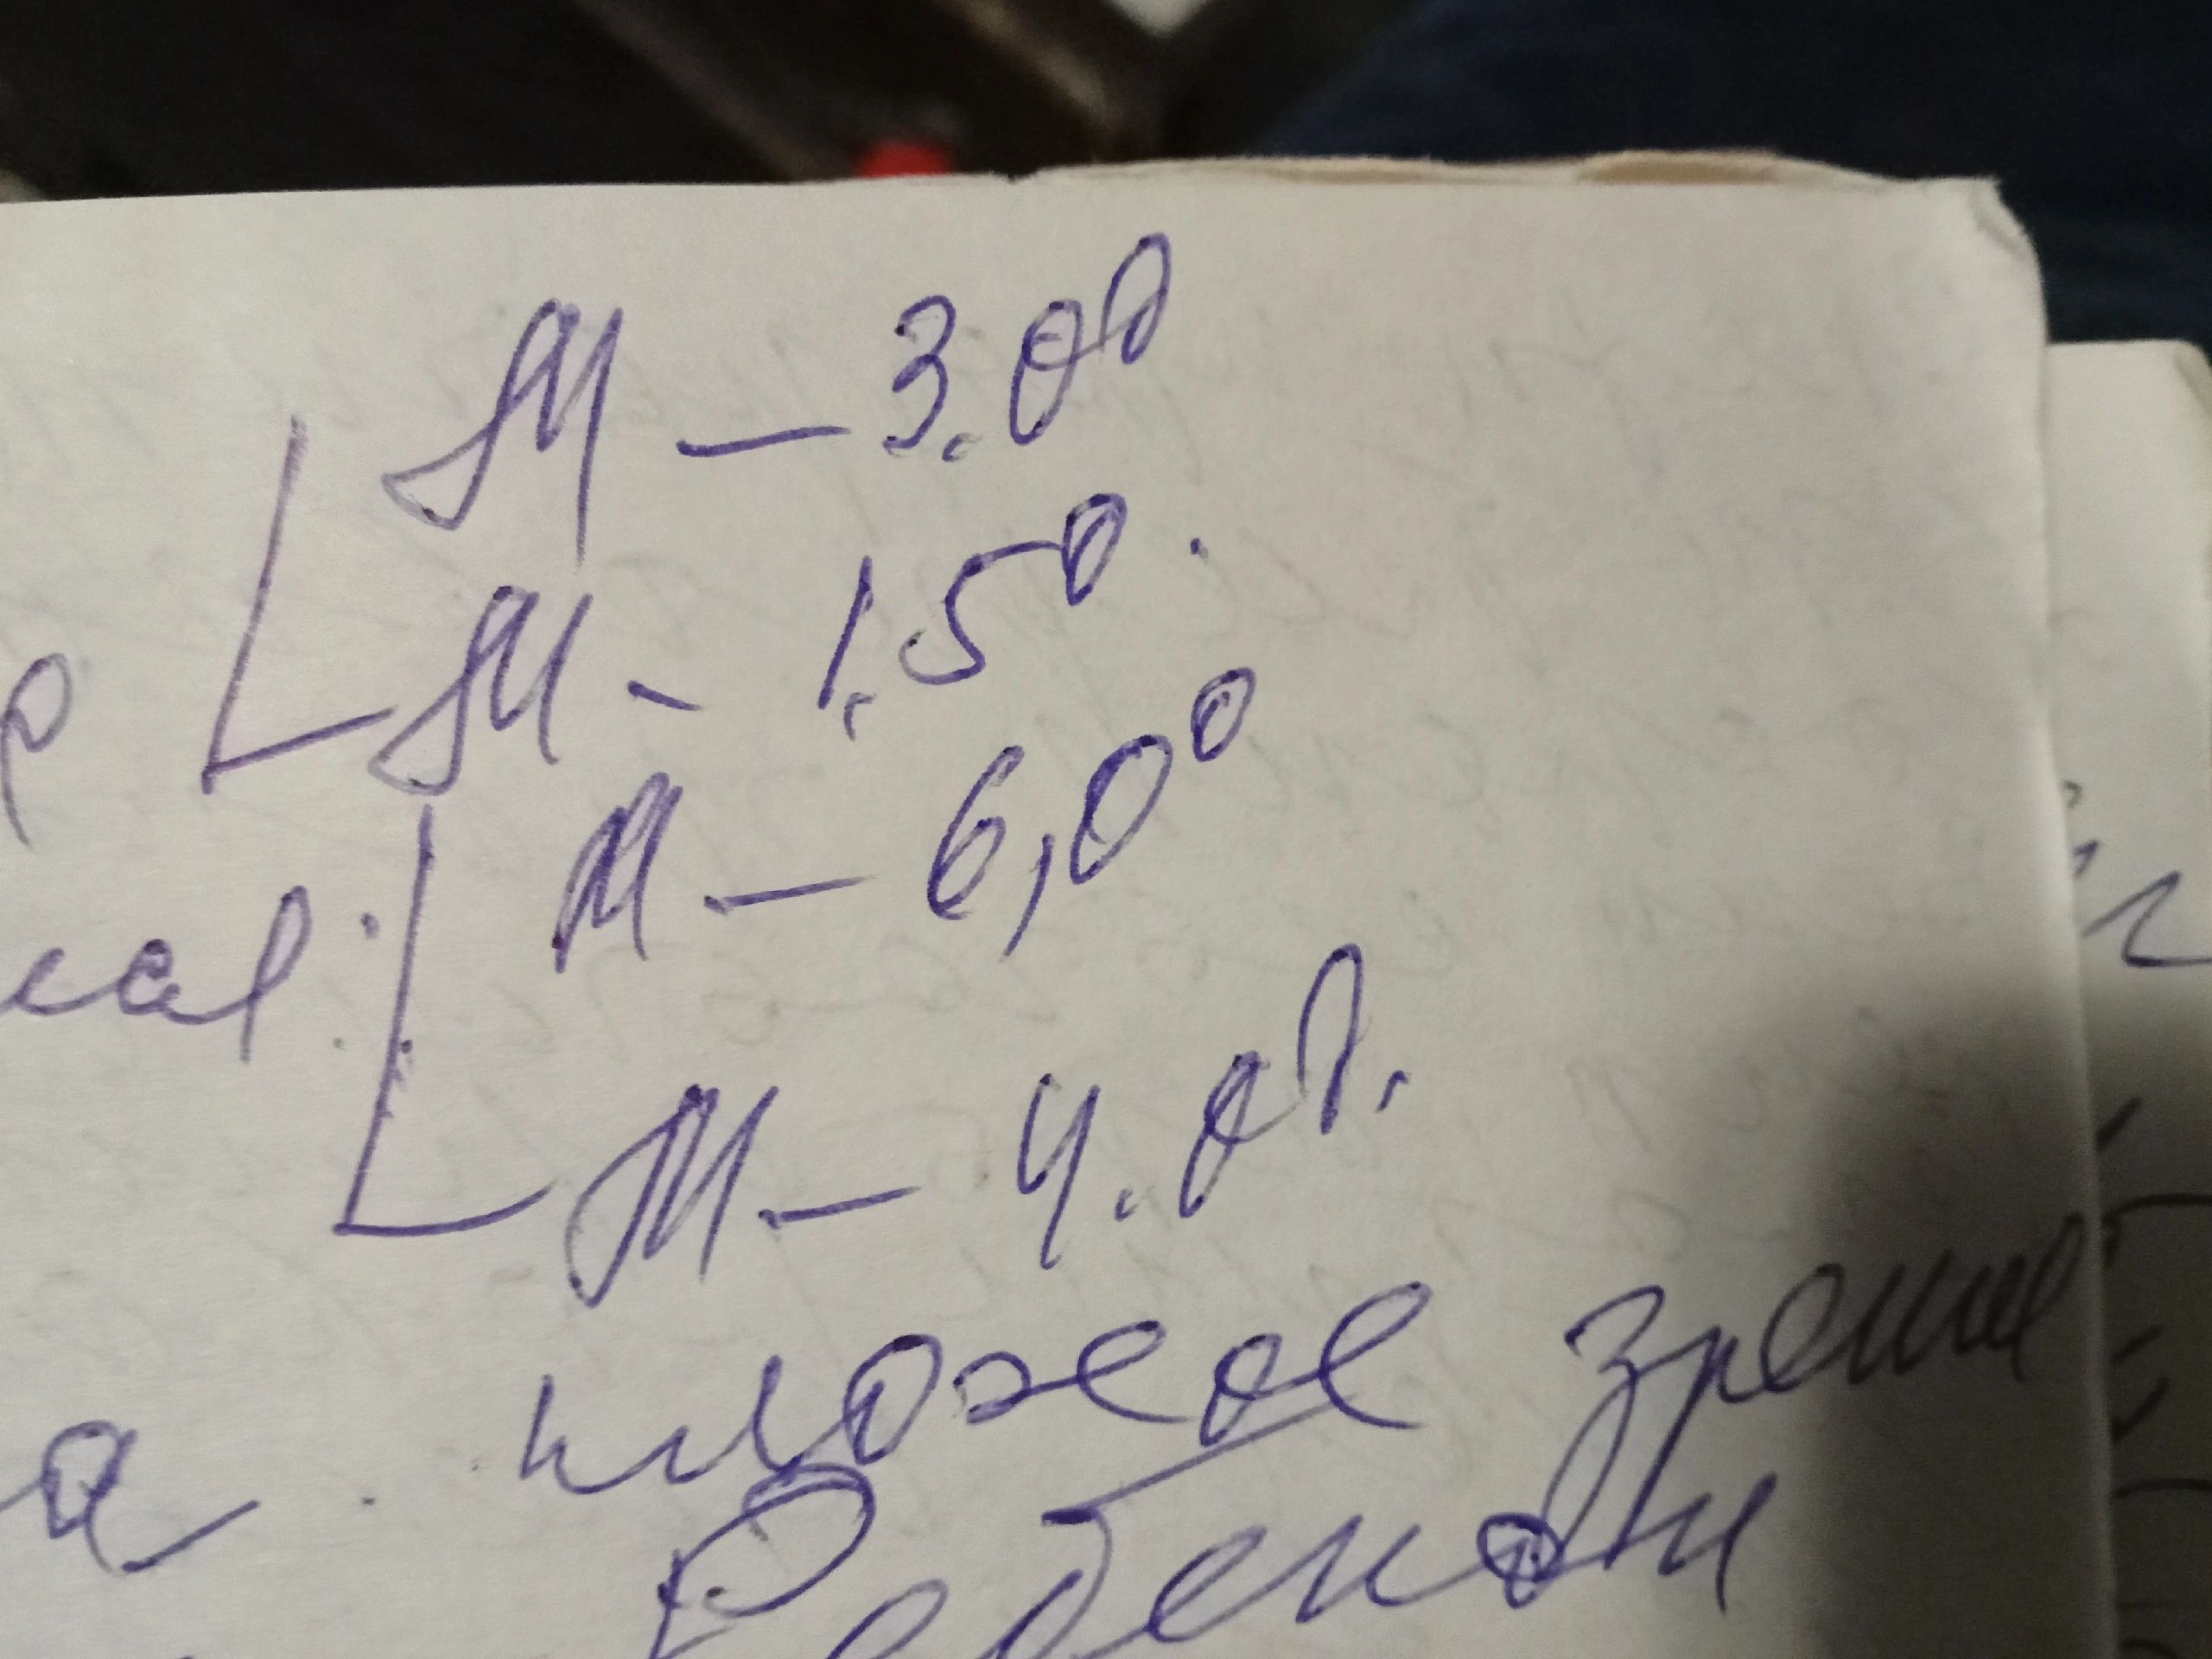 М — 3.0⁰
р М - 1.5⁰.
М — 6,0⁰
М — 4.0⁰.
а. плохое зрение
Ребенок